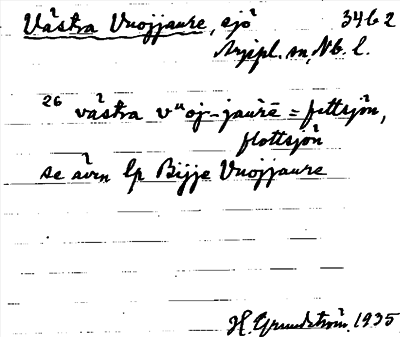 Västra Vuojjaure, sjö 3462
Arjepl. sn, Nb. l.
26 västra vuoj-jaurē = fettsjön,
flottsjön
se även lp Bijje Vuojjaure
H. Grundström. 1935